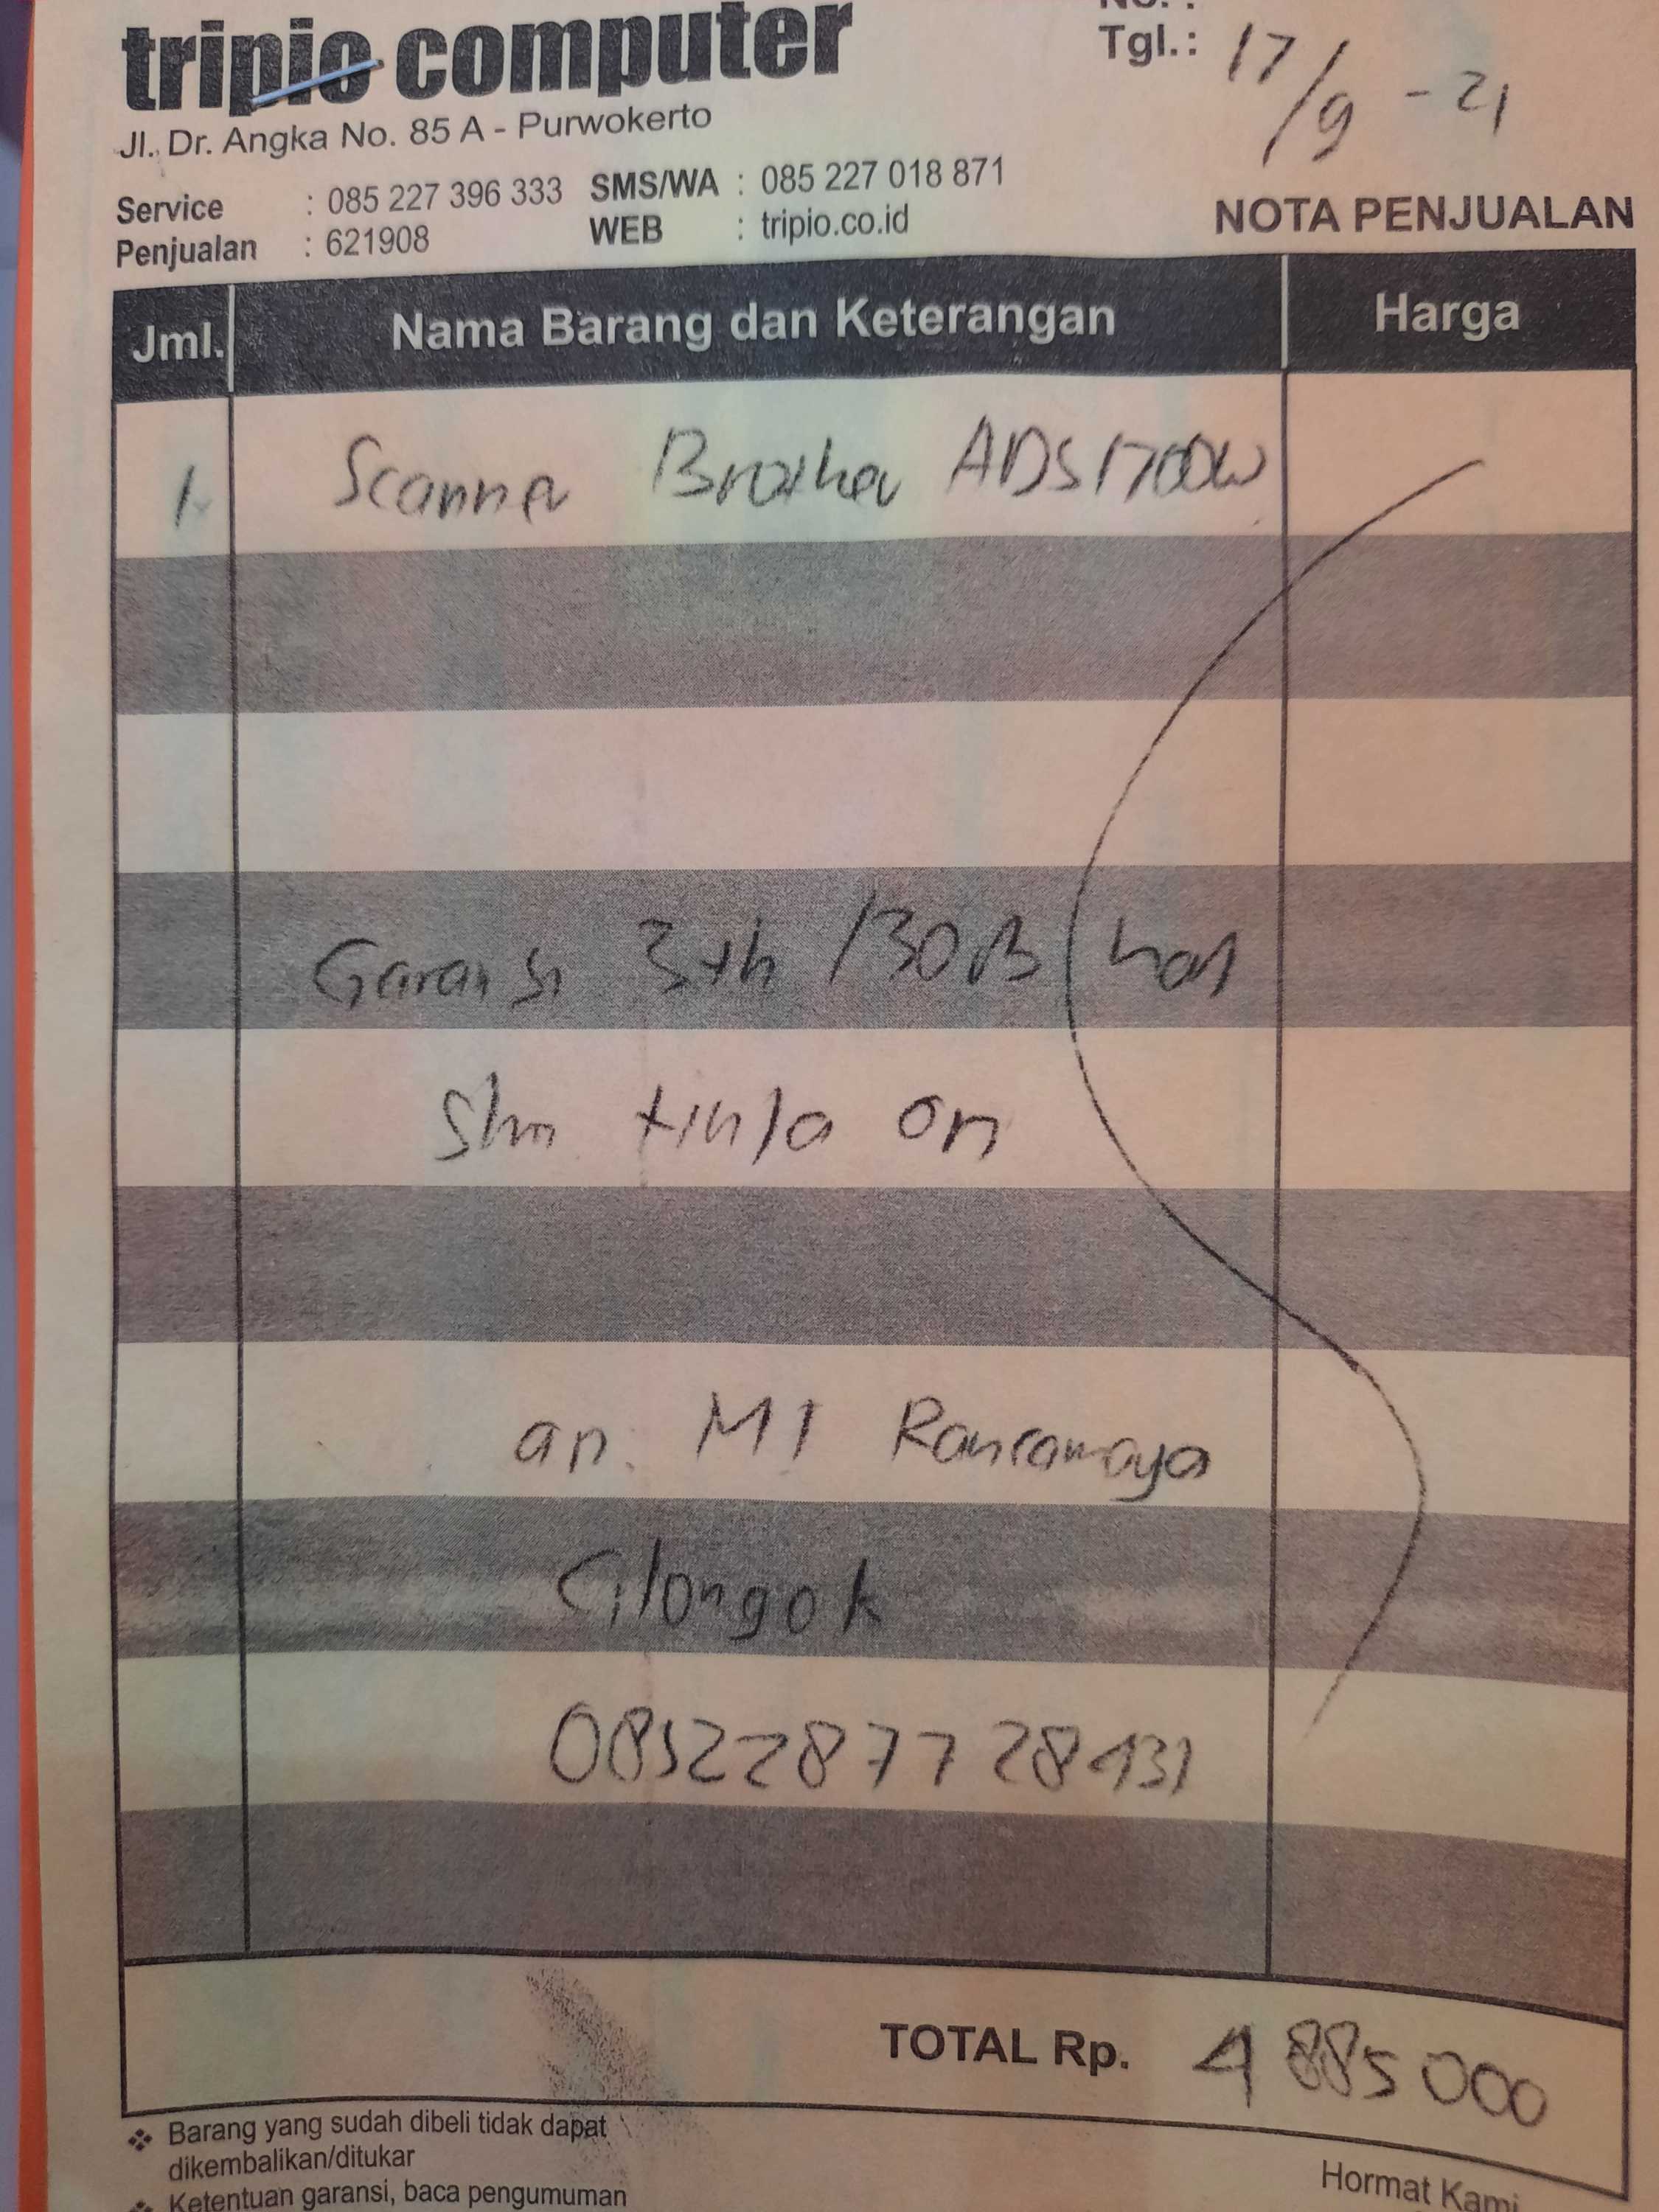 tripio computer
No. :
Tgl.: 17/9 - 21
Jl. Dr. Angka No. 85 A - Purwokerto
Service : 085 227 396 333 SMS/WA : 085 227 018 871
Penjualan : 621908 WEB : tripio.co.id
NOTA PENJUALAN
Jml. Nama Barang dan Keterangan Harga
1. Scanner Brother ADS1700W
Garansi 3th /30
an. MI Rancamaya
Cilongok
TOTAL Rp. 4 885 000
Barang yang sudah dibeli tidak dapat
dikembalikan/ditukar
Ketentuan garansi, baca pengumuman
Hormat Kami